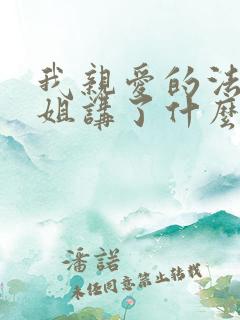 我親愛的法
姐講了什麼
潘諾
未經同意禁止轉載